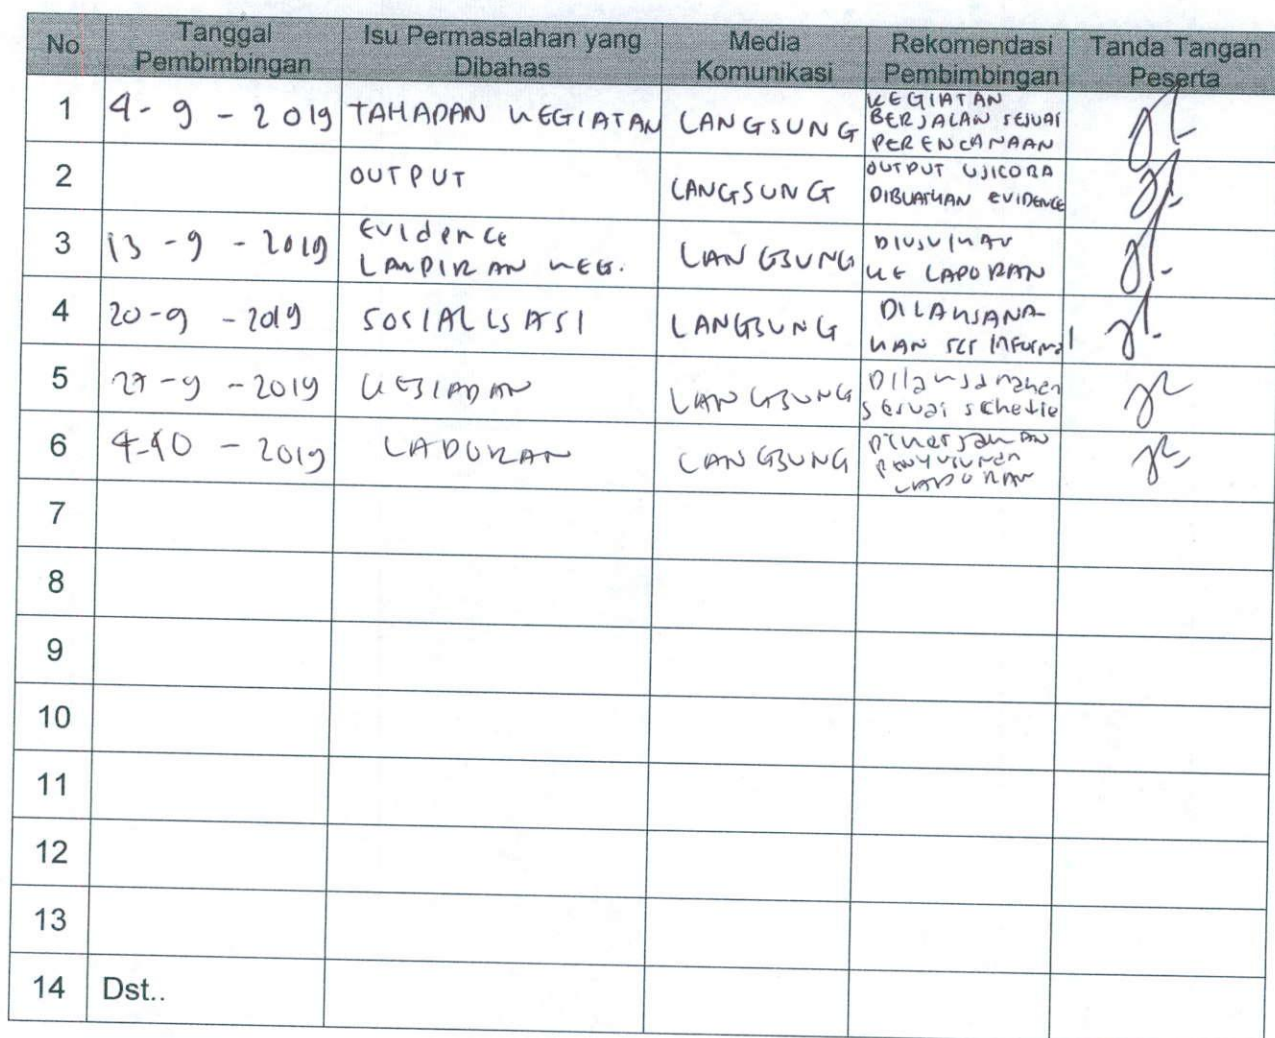 No
Tanggal
Pembimbingan
Isu Permasalahan yang
Dibahas
Media
Komunikasi
Rekomendasi
Pembimbingan
Tanda Tangan
Peserta
1
4 - 9 - 2019
TAHAPAN KEGIATAN
LANGSUNG
KEGIATAN
BERJALAN SESUAI
PERENCANAAN
2
OUTPUT
LANGSUNG
OUTPUT UJICOBA
DIBUATKAN EVIDENCE
3
13 - 9 - 2019
EVIDENCE
LAMPIRAN KEG.
LANGSUNG
DISUSUN
KE LAPORAN
4
20 - 9 - 2019
SOSIALISASI
LANGSUNG
DILAKSANA-
KAN SCR INFORMAL
5
27 - 9 - 2019
KEGIATAN
LANGSUNG
Dilaksanakan
sesuai
6
4-10 - 2019
LAPORAN
LANGSUNG
DIKERJAKAN
PENYUSUNAN
LAPORAN
7
8
9
10
11
12
13
14
Dst..